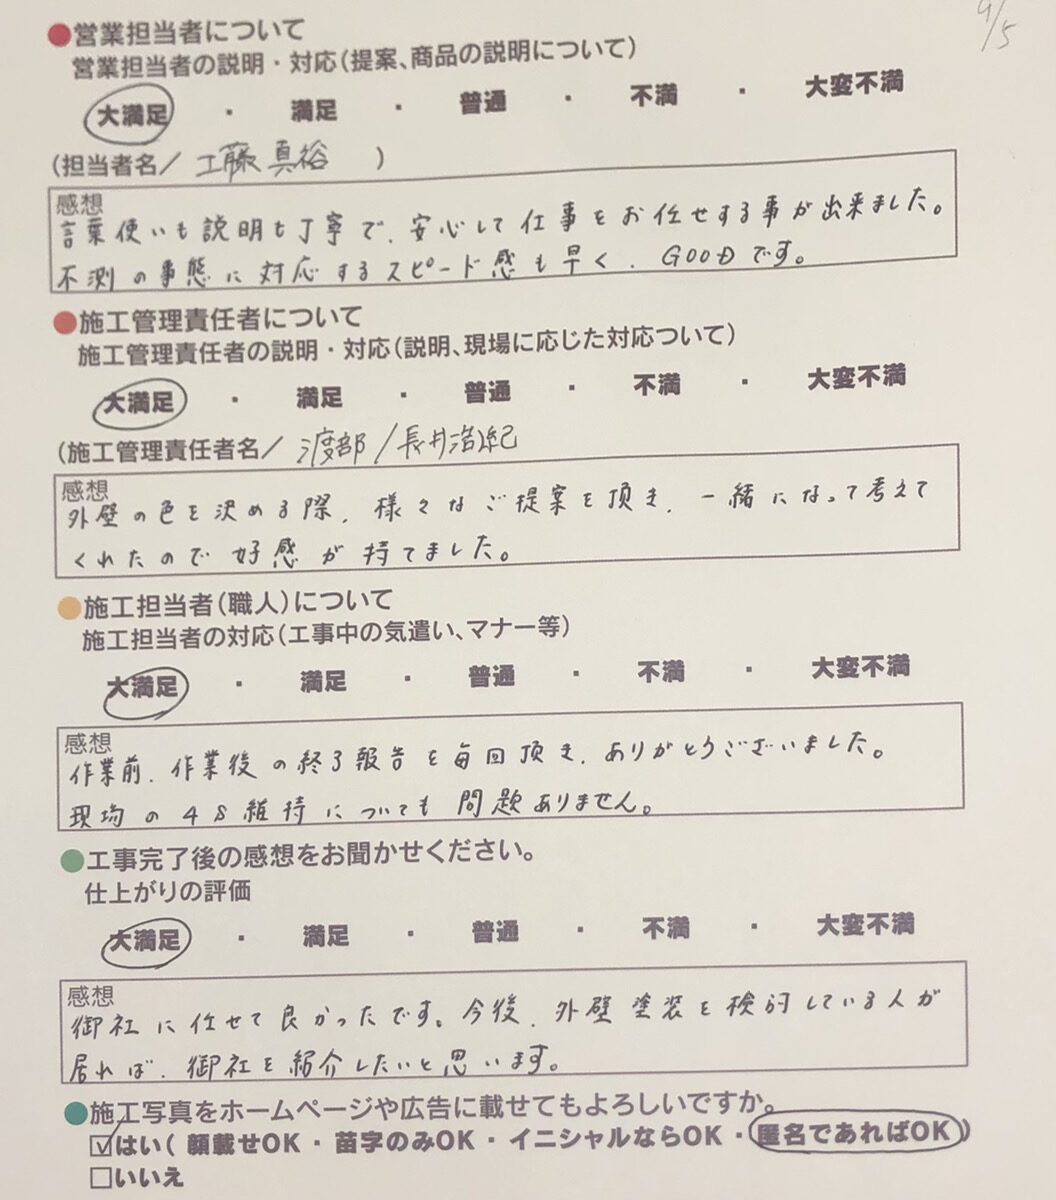 9/5
●営業担当者について
営業担当者の説明・対応(提案、商品の説明について)
大満足 ・ 満足 ・ 普通 ・ 不満 ・ 大変不満
(担当者名/ 工藤真裕 )
感想
言葉使いも説明も丁寧で、安心して仕事をお任せする事が出来ました。
不測の事態に対応するスピード感も早く、GOODです。
●施工管理責任者について
施工管理責任者の説明・対応(説明、現場に応じた対応ついて)
大満足 ・ 満足 ・ 普通 ・ 不満 ・ 大変不満
(施工管理責任者名/ 渡部/長井浩紀
感想
外壁の色を決める際、様々なご提案を頂き、一緒になって考えて
くれたので好感が持てました。
●施工担当者(職人)について
施工担当者の対応(工事中の気遣い、マナー等)
大満足 ・ 満足 ・ 普通 ・ 不満 ・ 大変不満
感想
作業前、作業後の終了報告を毎回頂き、ありがとうございました。
現均の4S維持についても問題ありません。
●工事完了後の感想をお聞かせください。
仕上がりの評価
大満足 ・ 満足 ・ 普通 ・ 不満 ・ 大変不満
感想
御社に任せて良かったです。今後、外壁塗装を検討している人が
居れば、御社を紹介したいと思います。
●施工写真をホームページや広告に載せてもよろしいですか。
☑はい( 顔載せOK ・ 苗字のみOK ・ イニシャルならOK ・ 匿名であればOK )
□いいえ